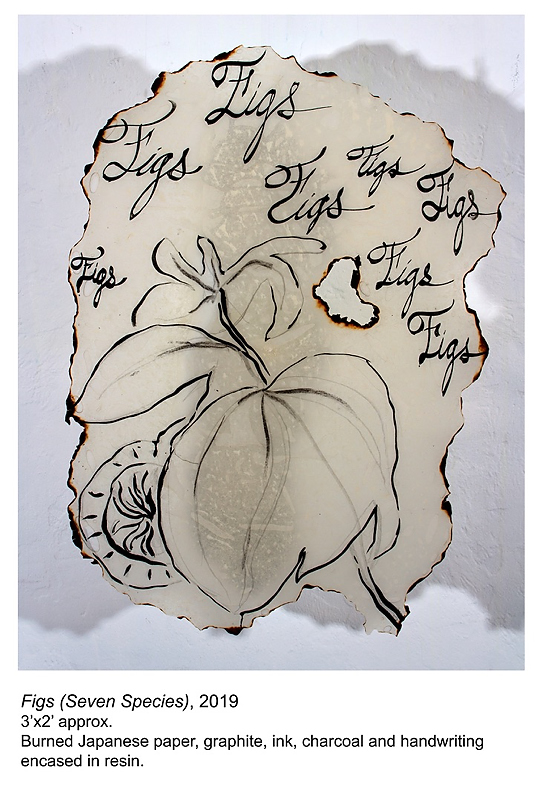 Figs
Figs
Figs
Figs
Figs
Figs
Figs
Figs
Figs (Seven Species), 2019
3'x2' approx.
Burned Japanese paper, graphite, ink, charcoal and handwriting
encased in resin.